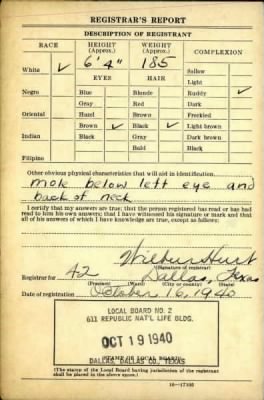 REGISTRAR'S REPORT
DESCRIPTION OF REGISTRANT
RACE HEIGHT (Approx.) WEIGHT (Approx.) COMPLEXION
6' 4" 185
White ✓ Sallow
EYES HAIR Light
Negro Blue Blonde Ruddy ✓
Gray Red Dark
Oriental Hazel Brown Freckled
Brown ✓ Black ✓ Light brown
Indian Black Gray Dark brown
Bald Black
Filipino
Other obvious physical characteristics that will aid in identification
mole below left eye and
back of neck
I certify that my answers are true; that the person registered has read or has had
read to him his own answers; that I have witnessed his signature or mark and that
all of his answers of which I have knowledge are true, except as follows:
Wilbur
(Signature of registrar)
Registrar for 42 Dallas, Texas
(Precinct) (Ward) (City or county) (State)
Date of registration October 16, 1940
LOCAL BOARD NO. 2
611 REPUBLIC NAT'L LIFE BLDG.
OCT 19 1940
(STAMP OF LOCAL BOARD)
DALLAS, DALLAS CO., TEXAS
(The stamp of the Local Board having jurisdiction of the registrant
shall be placed in the above space.)